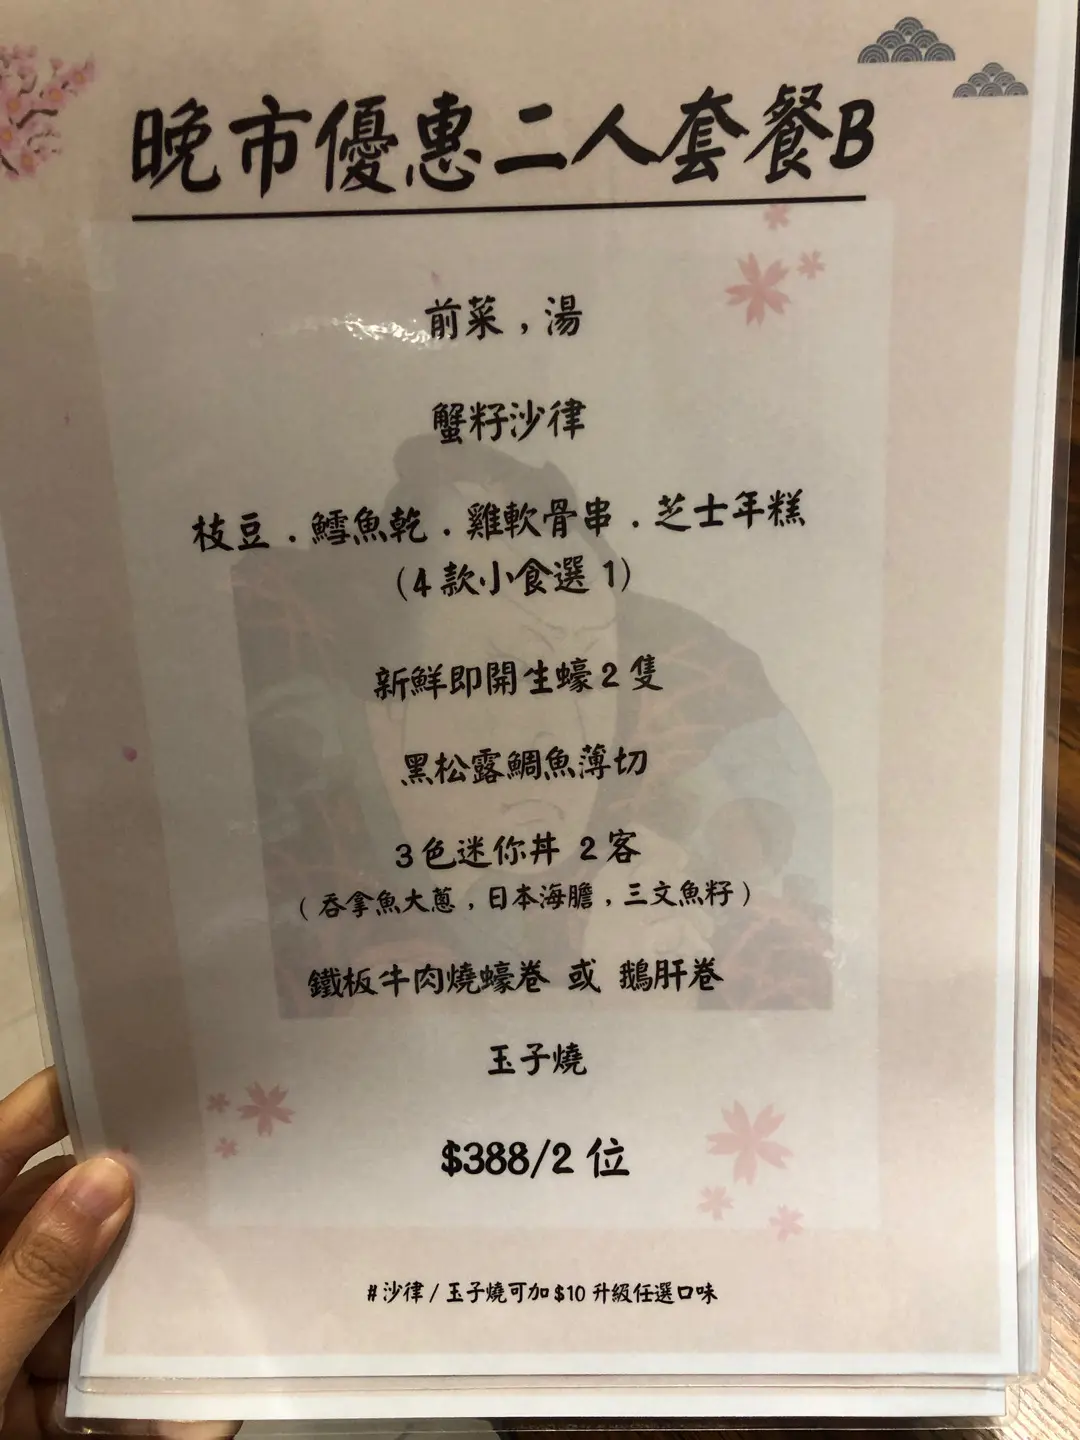 晚市優惠二人套餐B
前菜，湯
蟹籽沙律
枝豆．鱈魚乾．雞軟骨串．芝士年糕
（4 款小食選 1）
新鮮即開生蠔 2 隻
黑松露鯛魚薄切
3 色迷你丼 2 客
（吞拿魚大蔥，日本海膽，三文魚籽）
鐵板牛肉燒蠔卷 或 鵝肝卷
玉子燒
$388/2 位
#沙律 / 玉子燒可加 $10 升級任選口味